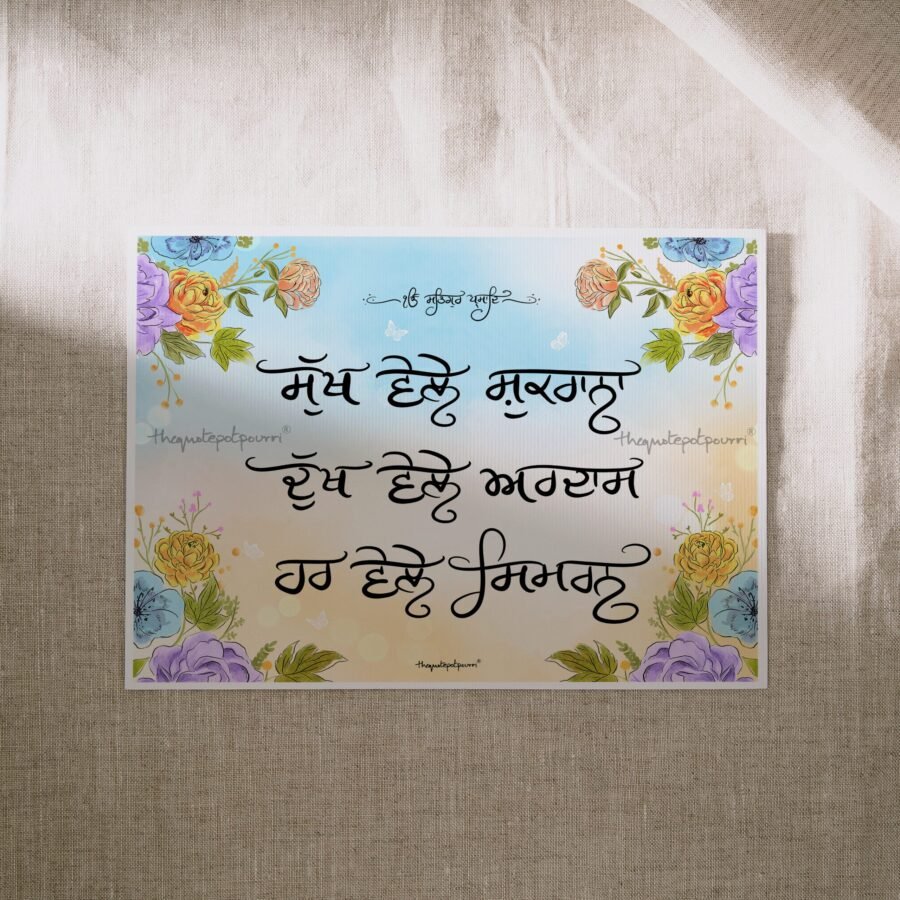 ੴ ਸਤਿਗੁਰ ਪ੍ਰਸਾਦਿ
ਸੁੱਖ ਵੇਲੇ ਸ਼ੁਕਰਾਨਾ
thequotepotpourri® thequotepotpourri®
ਦੁੱਖ ਵੇਲੇ ਅਰਦਾਸ
ਹਰ ਵੇਲੇ ਸਿਮਰਨ
thequotepotpourri®